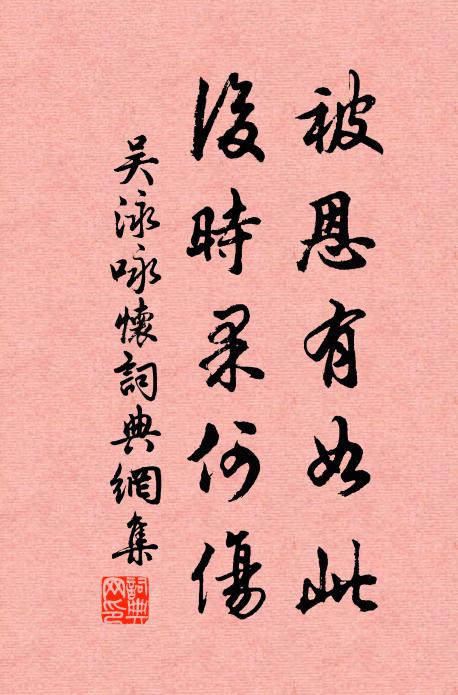 被恩有如此
後時果何傷
吴泳咏懷詞典網集
詞典网印